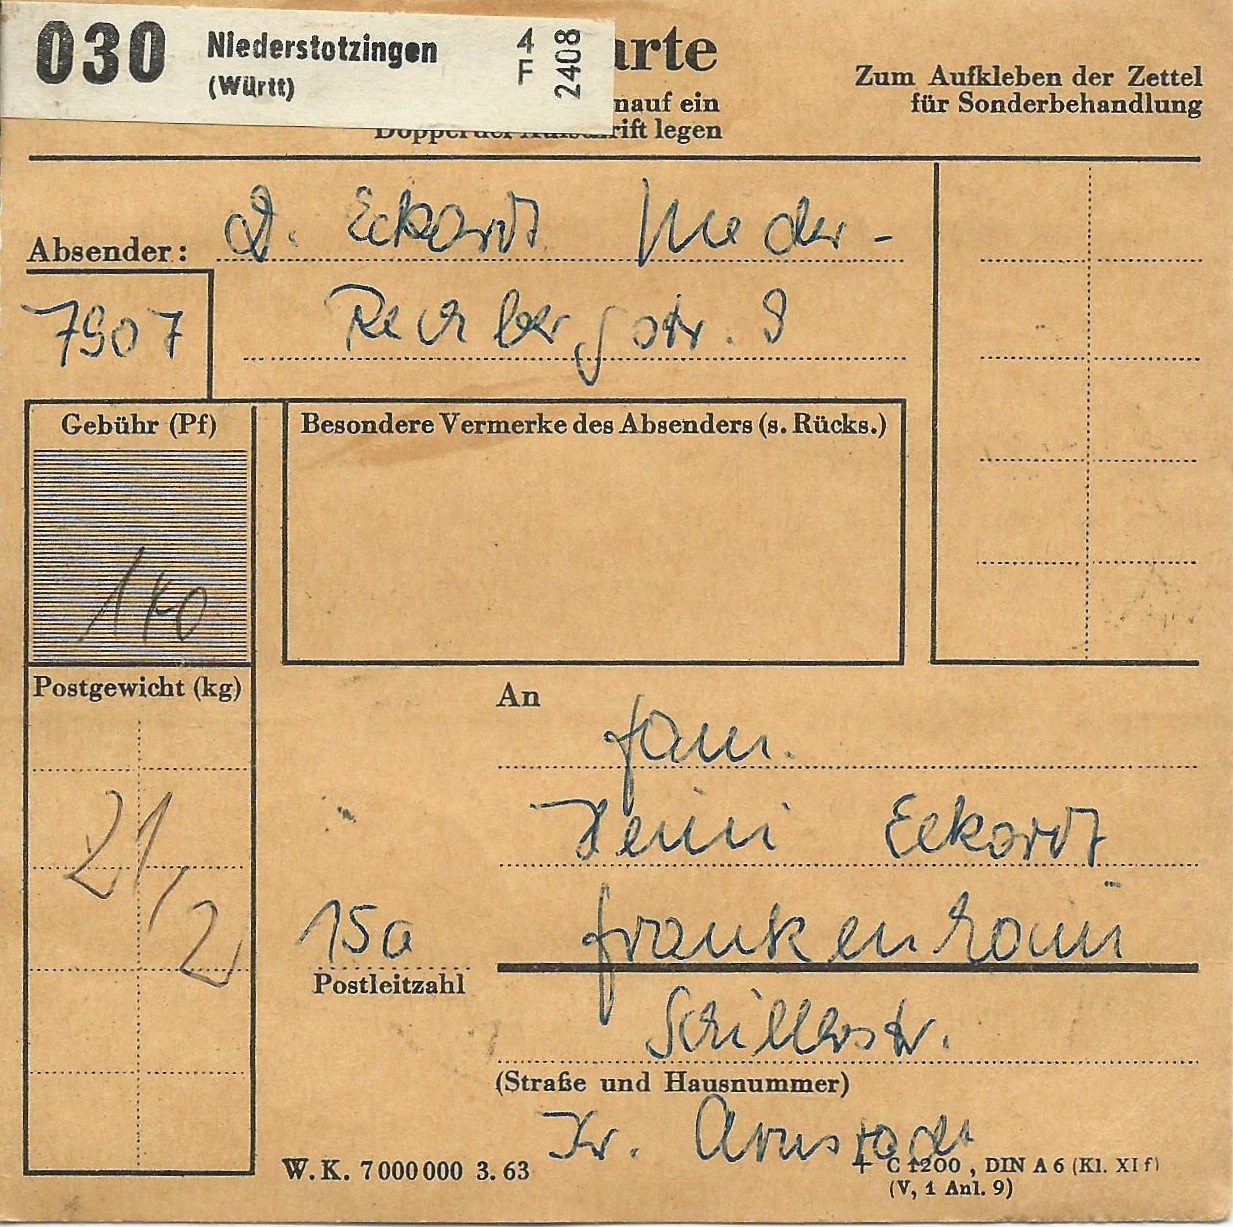 030 Niederstotzingen 4 2408 arte
(Württ) F
Zum Aufkleben der Zettel
nauf ein für Sonderbehandlung
Doppel der Aufschrift legen
Absender: D. Eckardt
7907 Rechbergstr. 9
Gebühr (Pf)
Besondere Vermerke des Absenders (s. Rücks.)
Postgewicht (kg)
An
Fam.
Heini Eckardt
15a
Postleitzahl
Schillerstr.
(Straße und Hausnummer)
Kr. Arnstadt
W.K. 7000000 3.63
+ C 1200, DIN A 6 (Kl. XI f)
(V, 1 Anl. 9)